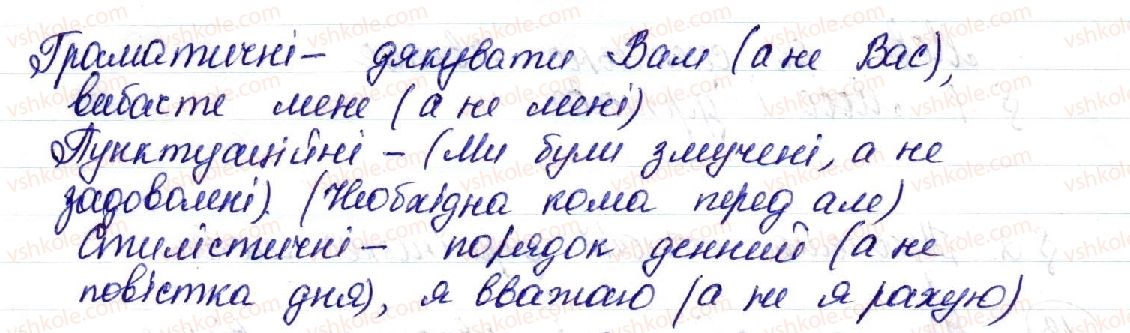 Граматичні – дякувати Вам (а не Вас),
вибачте мене (а не мені)
Пунктуаційні – (Ми були змучені, а не
задоволені). (Необхідна кома перед але)
Стилістичні – порядок денний (а не
повістка дня), я вважаю (а не я рахую)